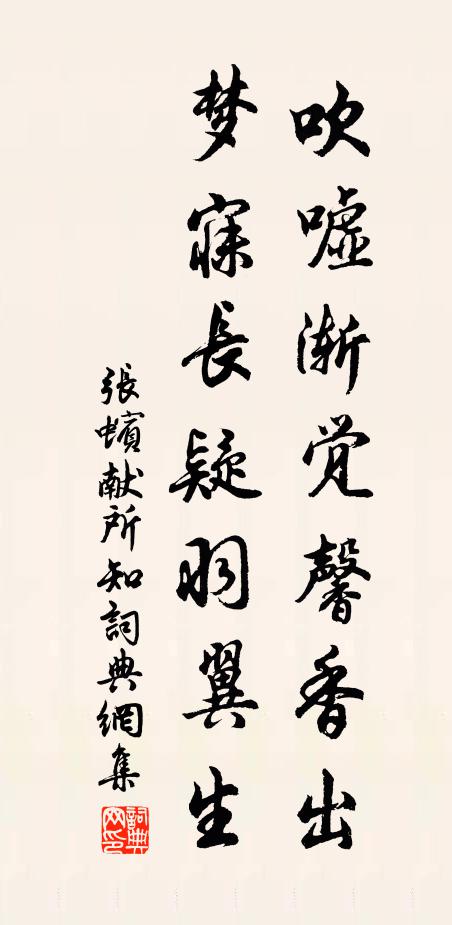 吹嘘渐觉馨香出
梦寐長疑羽翼生
張蠙献所知詞典網集
詞典网印